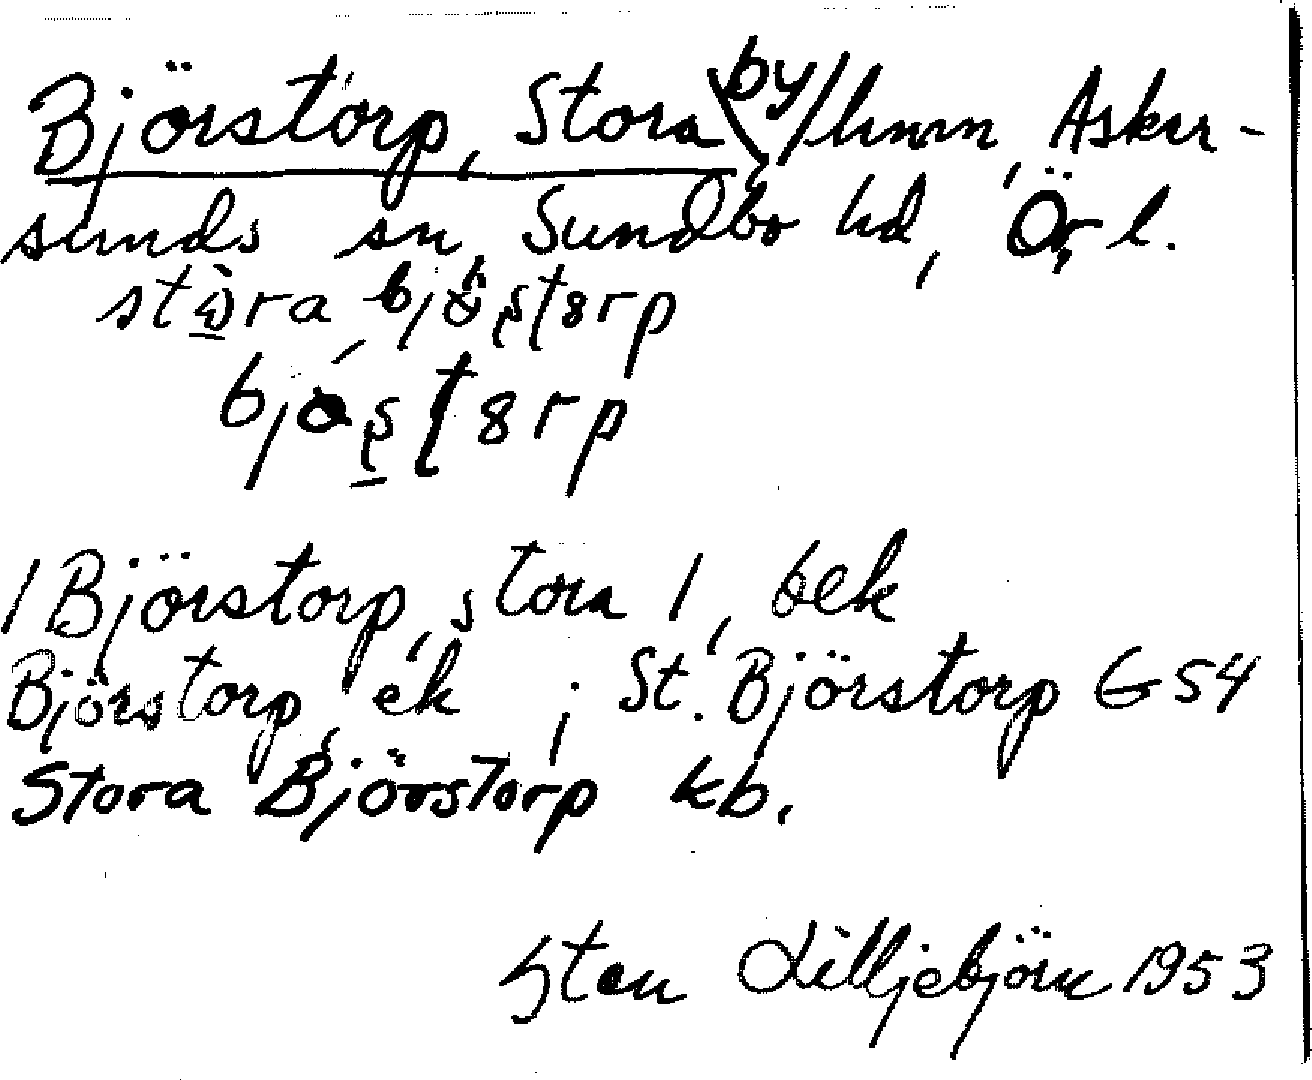 Björstorp, Stora by/hmn, Asker-
sunds sn, Sundbo hd, Ör l.
stòra bjö̀ʂʈ8rp
bjǿʂʈ8rp
/Björstorp, stora/, bek
Björstorp, ek; St. Björstorp G54
Stora Björstorp kb.
Sten Lilljebjörn 1953